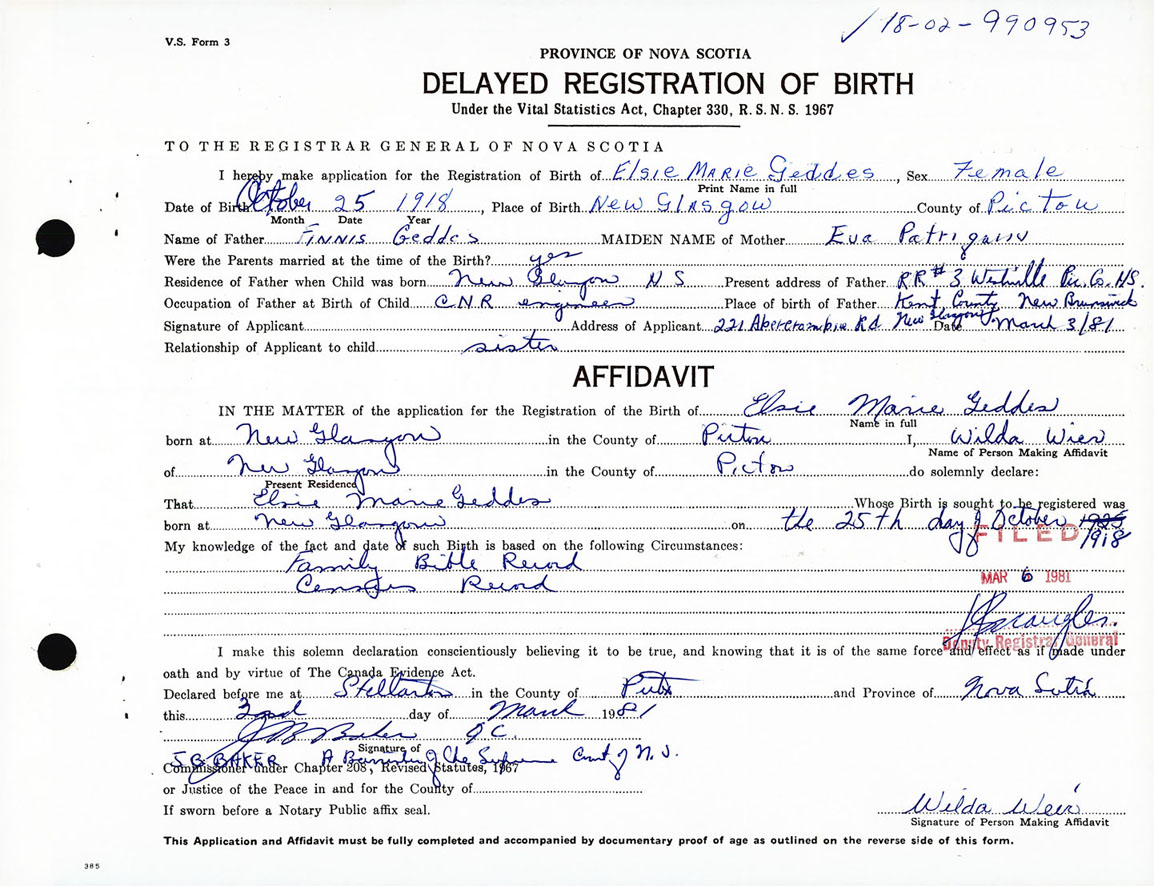 ✓ 18-02-990953
V.S. Form 3
PROVINCE OF NOVA SCOTIA
DELAYED REGISTRATION OF BIRTH
Under the Vital Statistics Act, Chapter 330, R. S. N. S. 1967
TO THE REGISTRAR GENERAL OF NOVA SCOTIA
I hereby make application for the Registration of Birth of Elsie Marie Geddes, Sex Female
Print Name in full
Date of Birth October 25 1918, Place of Birth New Glasgow County of Pictou
Month Date Year
Name of Father Finnis Geddes MAIDEN NAME of Mother Eva
Were the Parents married at the time of the Birth? yes
Residence of Father when Child was born New Glasgow N S Present address of Father RR # 3 Westville Pic. Co. N.S.
Occupation of Father at Birth of Child C.N.R engineer Place of birth of Father Kent County New Brunswick
Signature of Applicant Address of Applicant 221 Abercrombie Rd New Glasgow Date March 3/81
Relationship of Applicant to child sister
AFFIDAVIT
IN THE MATTER of the application for the Registration of the Birth of Elsie Marie Geddes
Name in full
born at New Glasgow in the County of Pictou I, Wilda Wier
Name of Person Making Affidavit
of New Glasgow in the County of Pictou do solemnly declare:
Present Residence
That Elsie Marie Geddes Whose Birth is sought to be registered was
born at New Glasgow on the 25th day of October 1918
FILED
My knowledge of the fact and date of such Birth is based on the following Circumstances:
Family Bible Record
Census Record
MAR 6 1981
Deputy Registrar General
I make this solemn declaration conscientiously believing it to be true, and knowing that it is of the same force and effect as if made under
oath and by virtue of The Canada Evidence Act.
Declared before me at Stellarton in the County of Pictou and Province of Nova Scotia
this 3rd day of March 1981
J B Baker Q.C.
Signature of
J.B. BAKER A Barrister of the Supreme Court of N.S.
Commissioner under Chapter 208, Revised Statutes, 1967
or Justice of the Peace in and for the County of
If sworn before a Notary Public affix seal.
Wilda Weir
Signature of Person Making Affidavit
This Application and Affidavit must be fully completed and accompanied by documentary proof of age as outlined on the reverse side of this form.
385